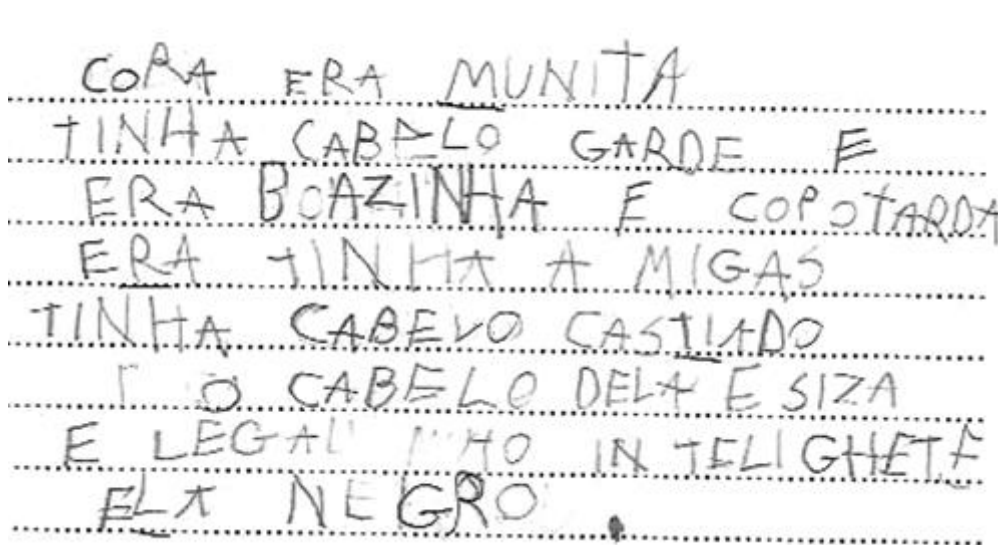 CORA ERA MUNITA
TINHA CABELO GARDE E
ERA BOAZINHA E COPOTARDA
ERA TINHA A MIGAS
TINHA CABELO CASTIADO
O CABELO DELA E SIZA
E LEGAL INTELIGHETE
ELA NEGRO